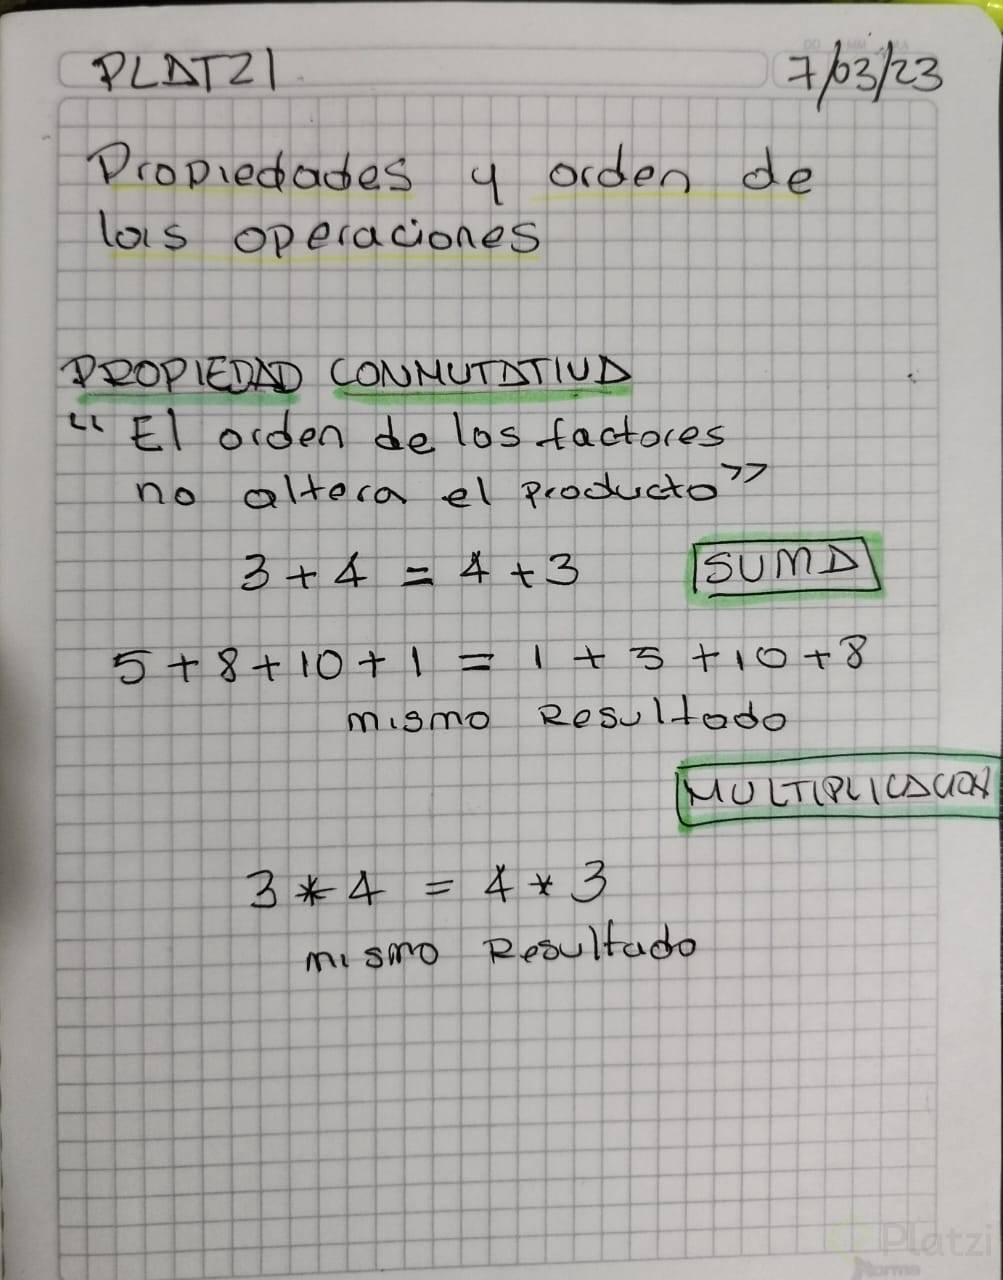 PLATZI
7/03/23
Propiedades y orden de
las operaciones
PROPIEDAD CONMUTATIVA
"El orden de los factores
no altera el producto"
3 + 4 = 4 + 3
SUMA
5 + 8 + 10 + 1 = 1 + 5 + 10 + 8
mismo Resultado
MULTIPLICACION
3 * 4 = 4 * 3
mismo Resultado
Platzi
Norma